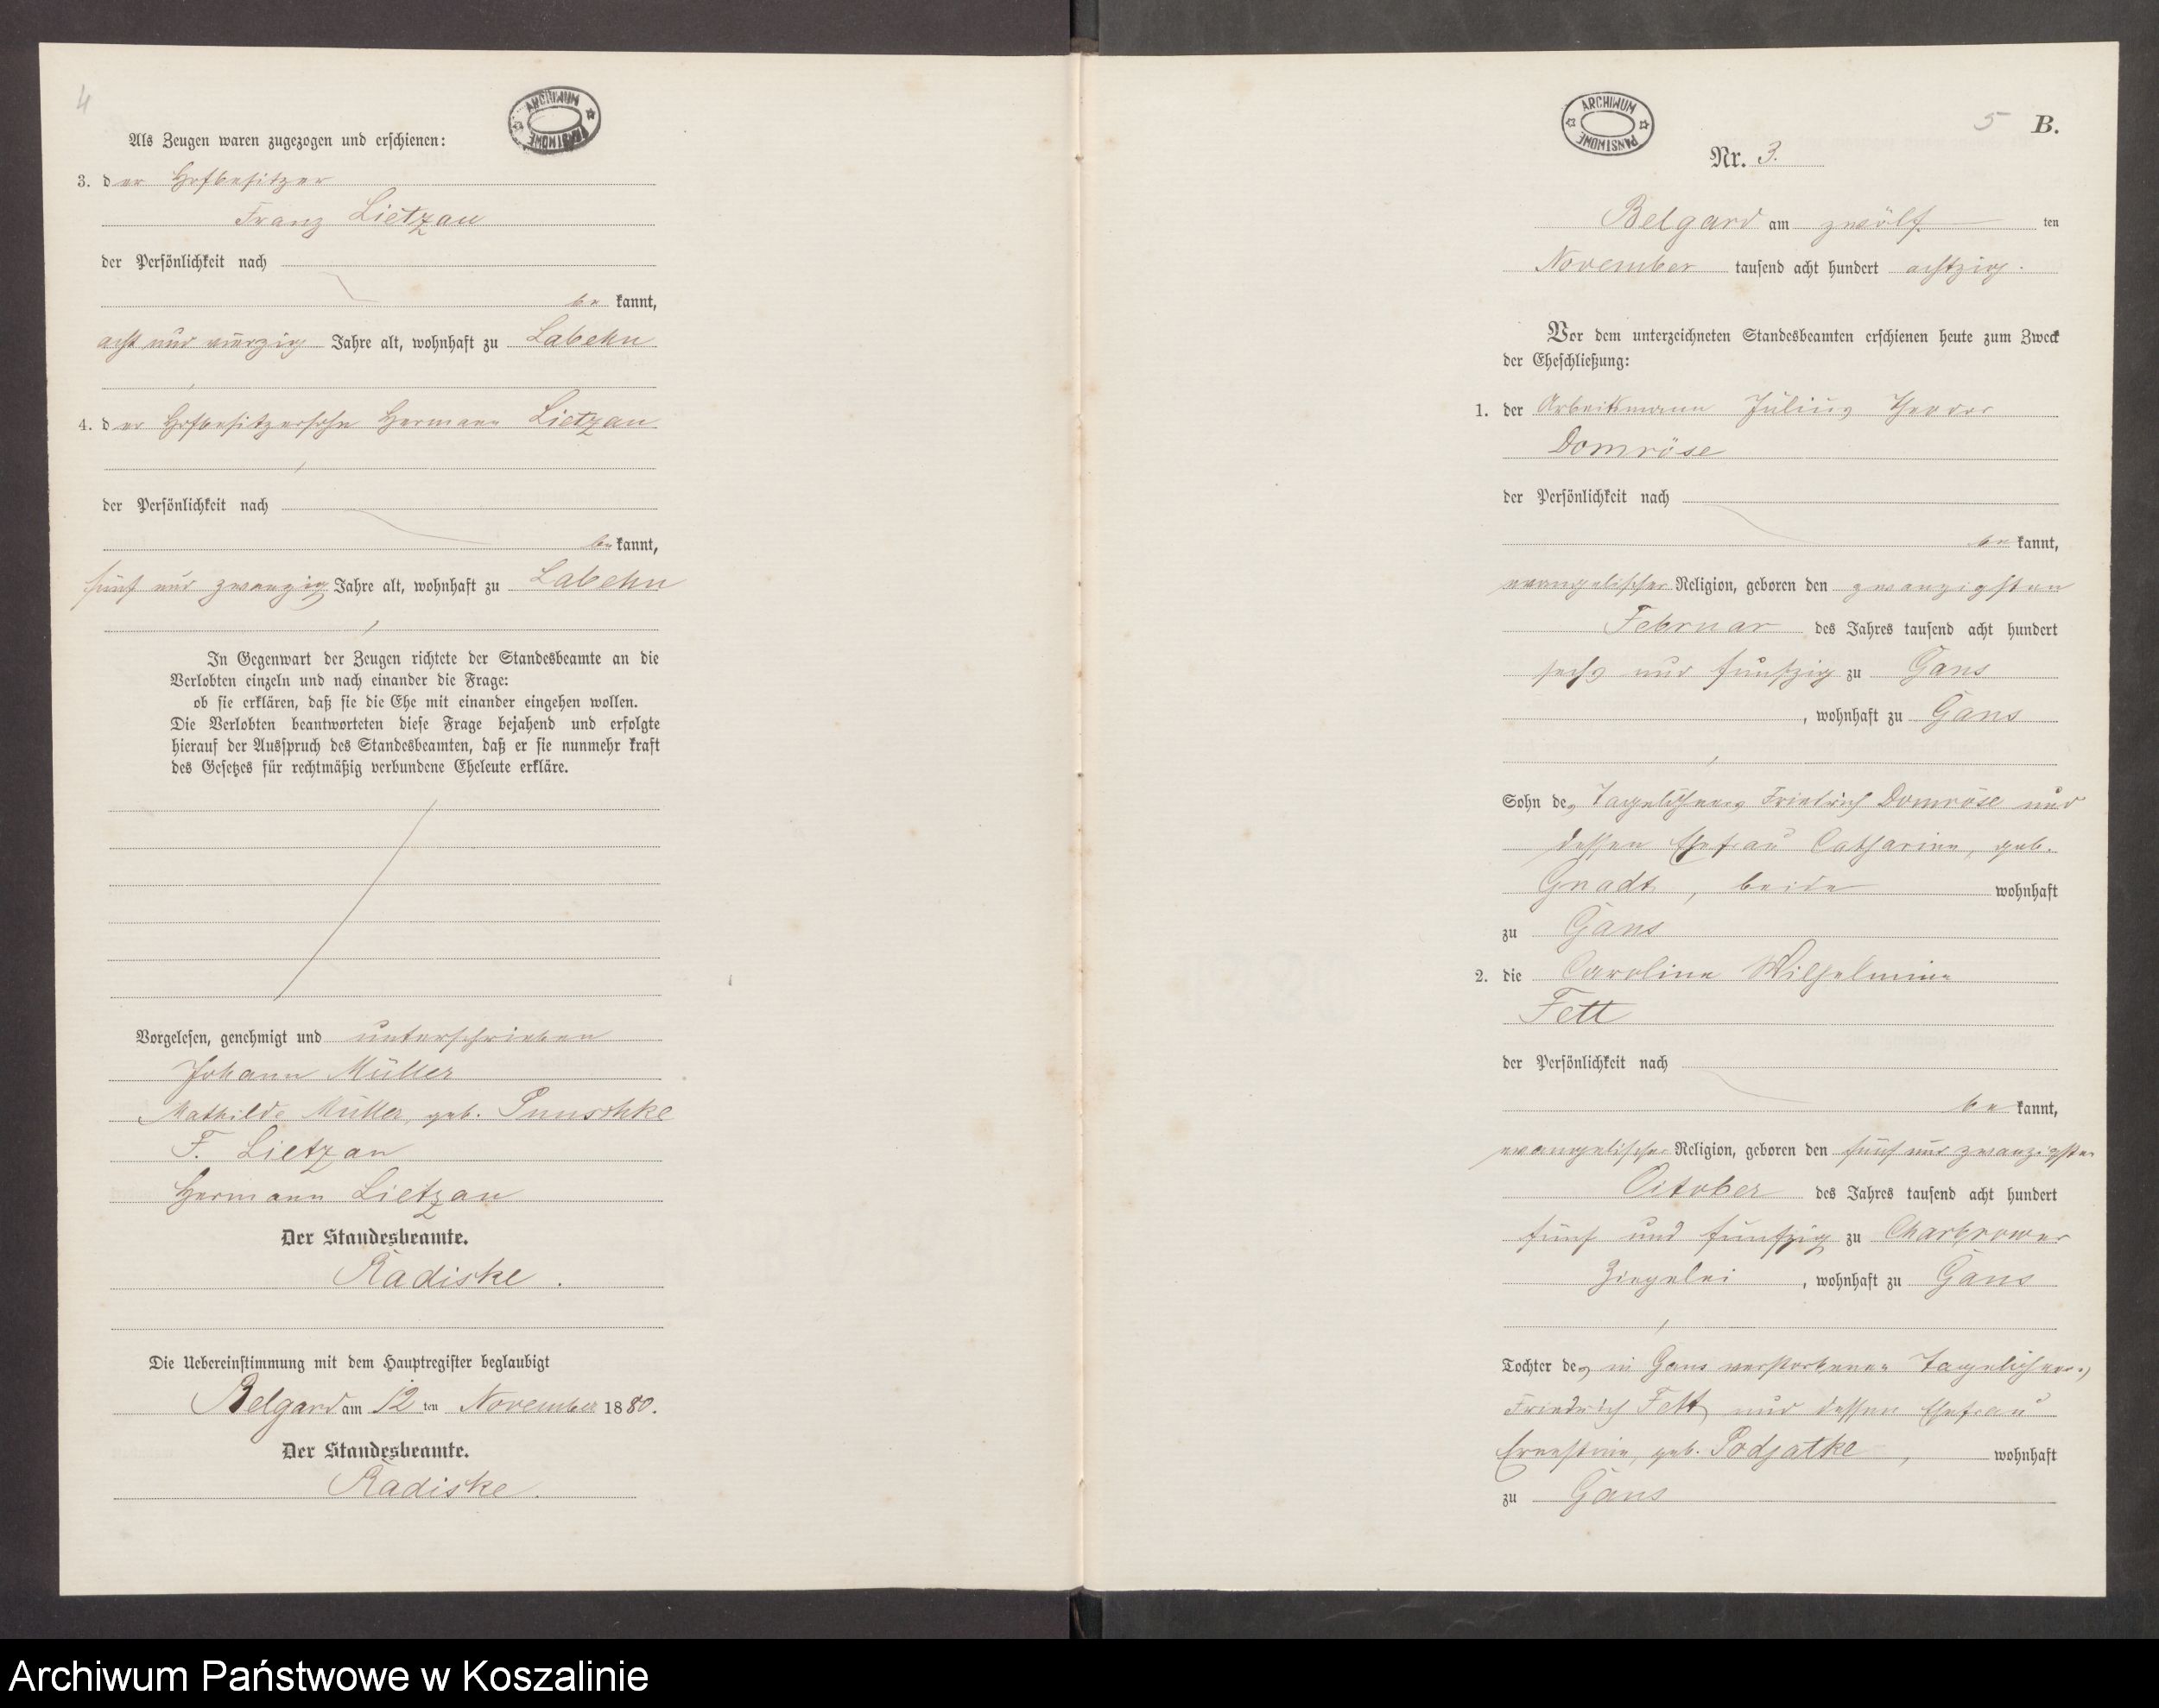 4
ARCHIWUM PAŃSTWOWE
Als Zeugen waren zugezogen und erschienen:
3. der Hofbesitzer
Franz Lietzau
der Persönlichkeit nach
be kannt,
acht und vierzig Jahre alt, wohnhaft zu Labehn
4. der Hofbesitzersohn Hermann Lietzau
der Persönlichkeit nach
be kannt,
fünf und zwanzig Jahre alt, wohnhaft zu Labehn
In Gegenwart der Zeugen richtete der Standesbeamte an die
Verlobten einzeln und nach einander die Frage:
ob sie erklären, daß sie die Ehe mit einander eingehen wollen.
Die Verlobten beantworteten diese Frage bejahend und erfolgte
hierauf der Ausspruch des Standesbeamten, daß er sie nunmehr kraft
des Gesetzes für rechtmäßig verbundene Eheleute erkläre.
Vorgelesen, genehmigt und unterschrieben
Johann Müller
Mathilde Müller, geb.
F. Lietzau
Hermann Lietzau
Der Standesbeamte.
Radiske.
Die Uebereinstimmung mit dem Hauptregister beglaubigt
Belgard am 12 ten November 1880.
Der Standesbeamte.
Radiske.
ARCHIWUM PAŃSTWOWE
5 B.
Nr. 3.
Belgard am zwölf ten
November tausend acht hundert achtzig.
Vor dem unterzeichneten Standesbeamten erschienen heute zum Zweck
der Eheschließung:
1. der Arbeitsmann Julius Theodor
Domröse
der Persönlichkeit nach
be kannt,
evangelischer Religion, geboren den zwanzigsten
Februar des Jahres tausend acht hundert
sechs und fünfzig zu Gans
, wohnhaft zu Gans
Sohn des Tagelöhners Friedrich Domröse und
dessen Ehefrau Catharine, geb.
Gnadt, beide wohnhaft
zu Gans
2. die Caroline Wilhelmine
Fett
der Persönlichkeit nach
be kannt,
evangelischer Religion, geboren den fünf und zwanzigsten
October des Jahres tausend acht hundert
fünf und fünfzig zu Charbrower
Ziegelei, wohnhaft zu Gans
Tochter des in Gans verstorbenen Tagelöhners
Friedrich Fett und dessen Ehefrau
Ernestine, geb. Podjatke, wohnhaft
zu Gans
Archiwum Państwowe w Koszalinie